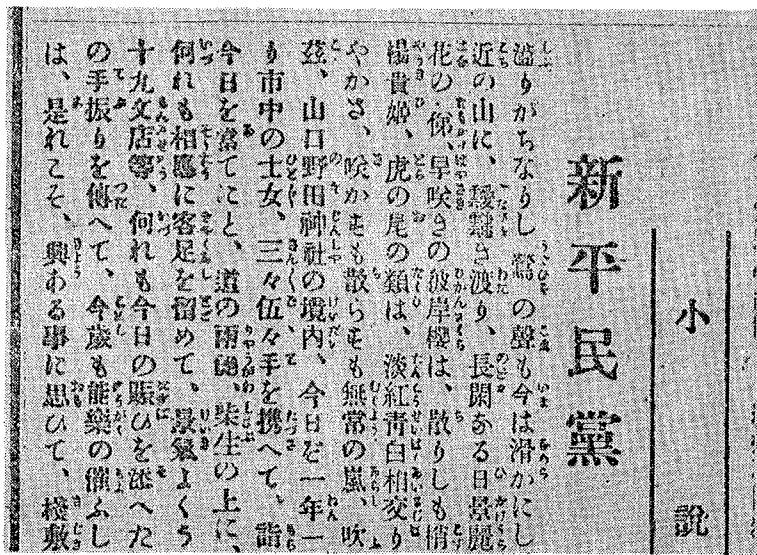 小說
新平民黨
澁りがちなりし鶯の聲も今は滑かにし
近の山に、靉靆き渡り、長閑ある日景麗
花の俤、早咲きの彼岸櫻は、散りしも梢
楊貴姬、虎の尾の類は、淡紅靑白相交り
やかさ、咲かせも散らせも無常の嵐、吹
茲、山口野田神社の境内、今日を一年一
り市中の士女、三々伍々手を携へて、詣
今日を當てにと、道の兩側、柴生の上に、
何れも相應に客足を留めて、景氣よくう
十九文店等、何れも今日の賑ひを添へた
の手振りを傳へて、今歲も能樂の催ふし
は、是れこそ、興ある事に思ひて、棧敷